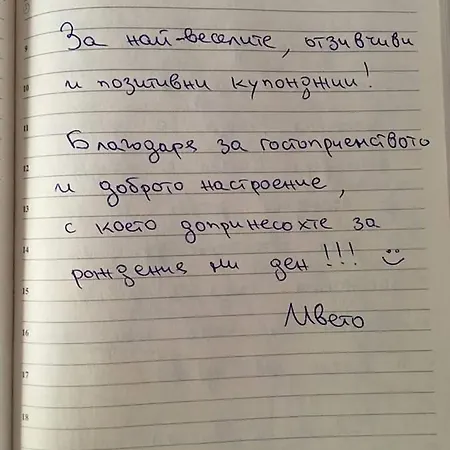 За най-веселите, отзивчиви
и позитивни купонджии!
Благодаря за гостоприемството
и доброто настроение,
с което допринесохте за
рождения ми ден!!! :)
Ивето
9
10
11
12
13
14
15
16
17
18